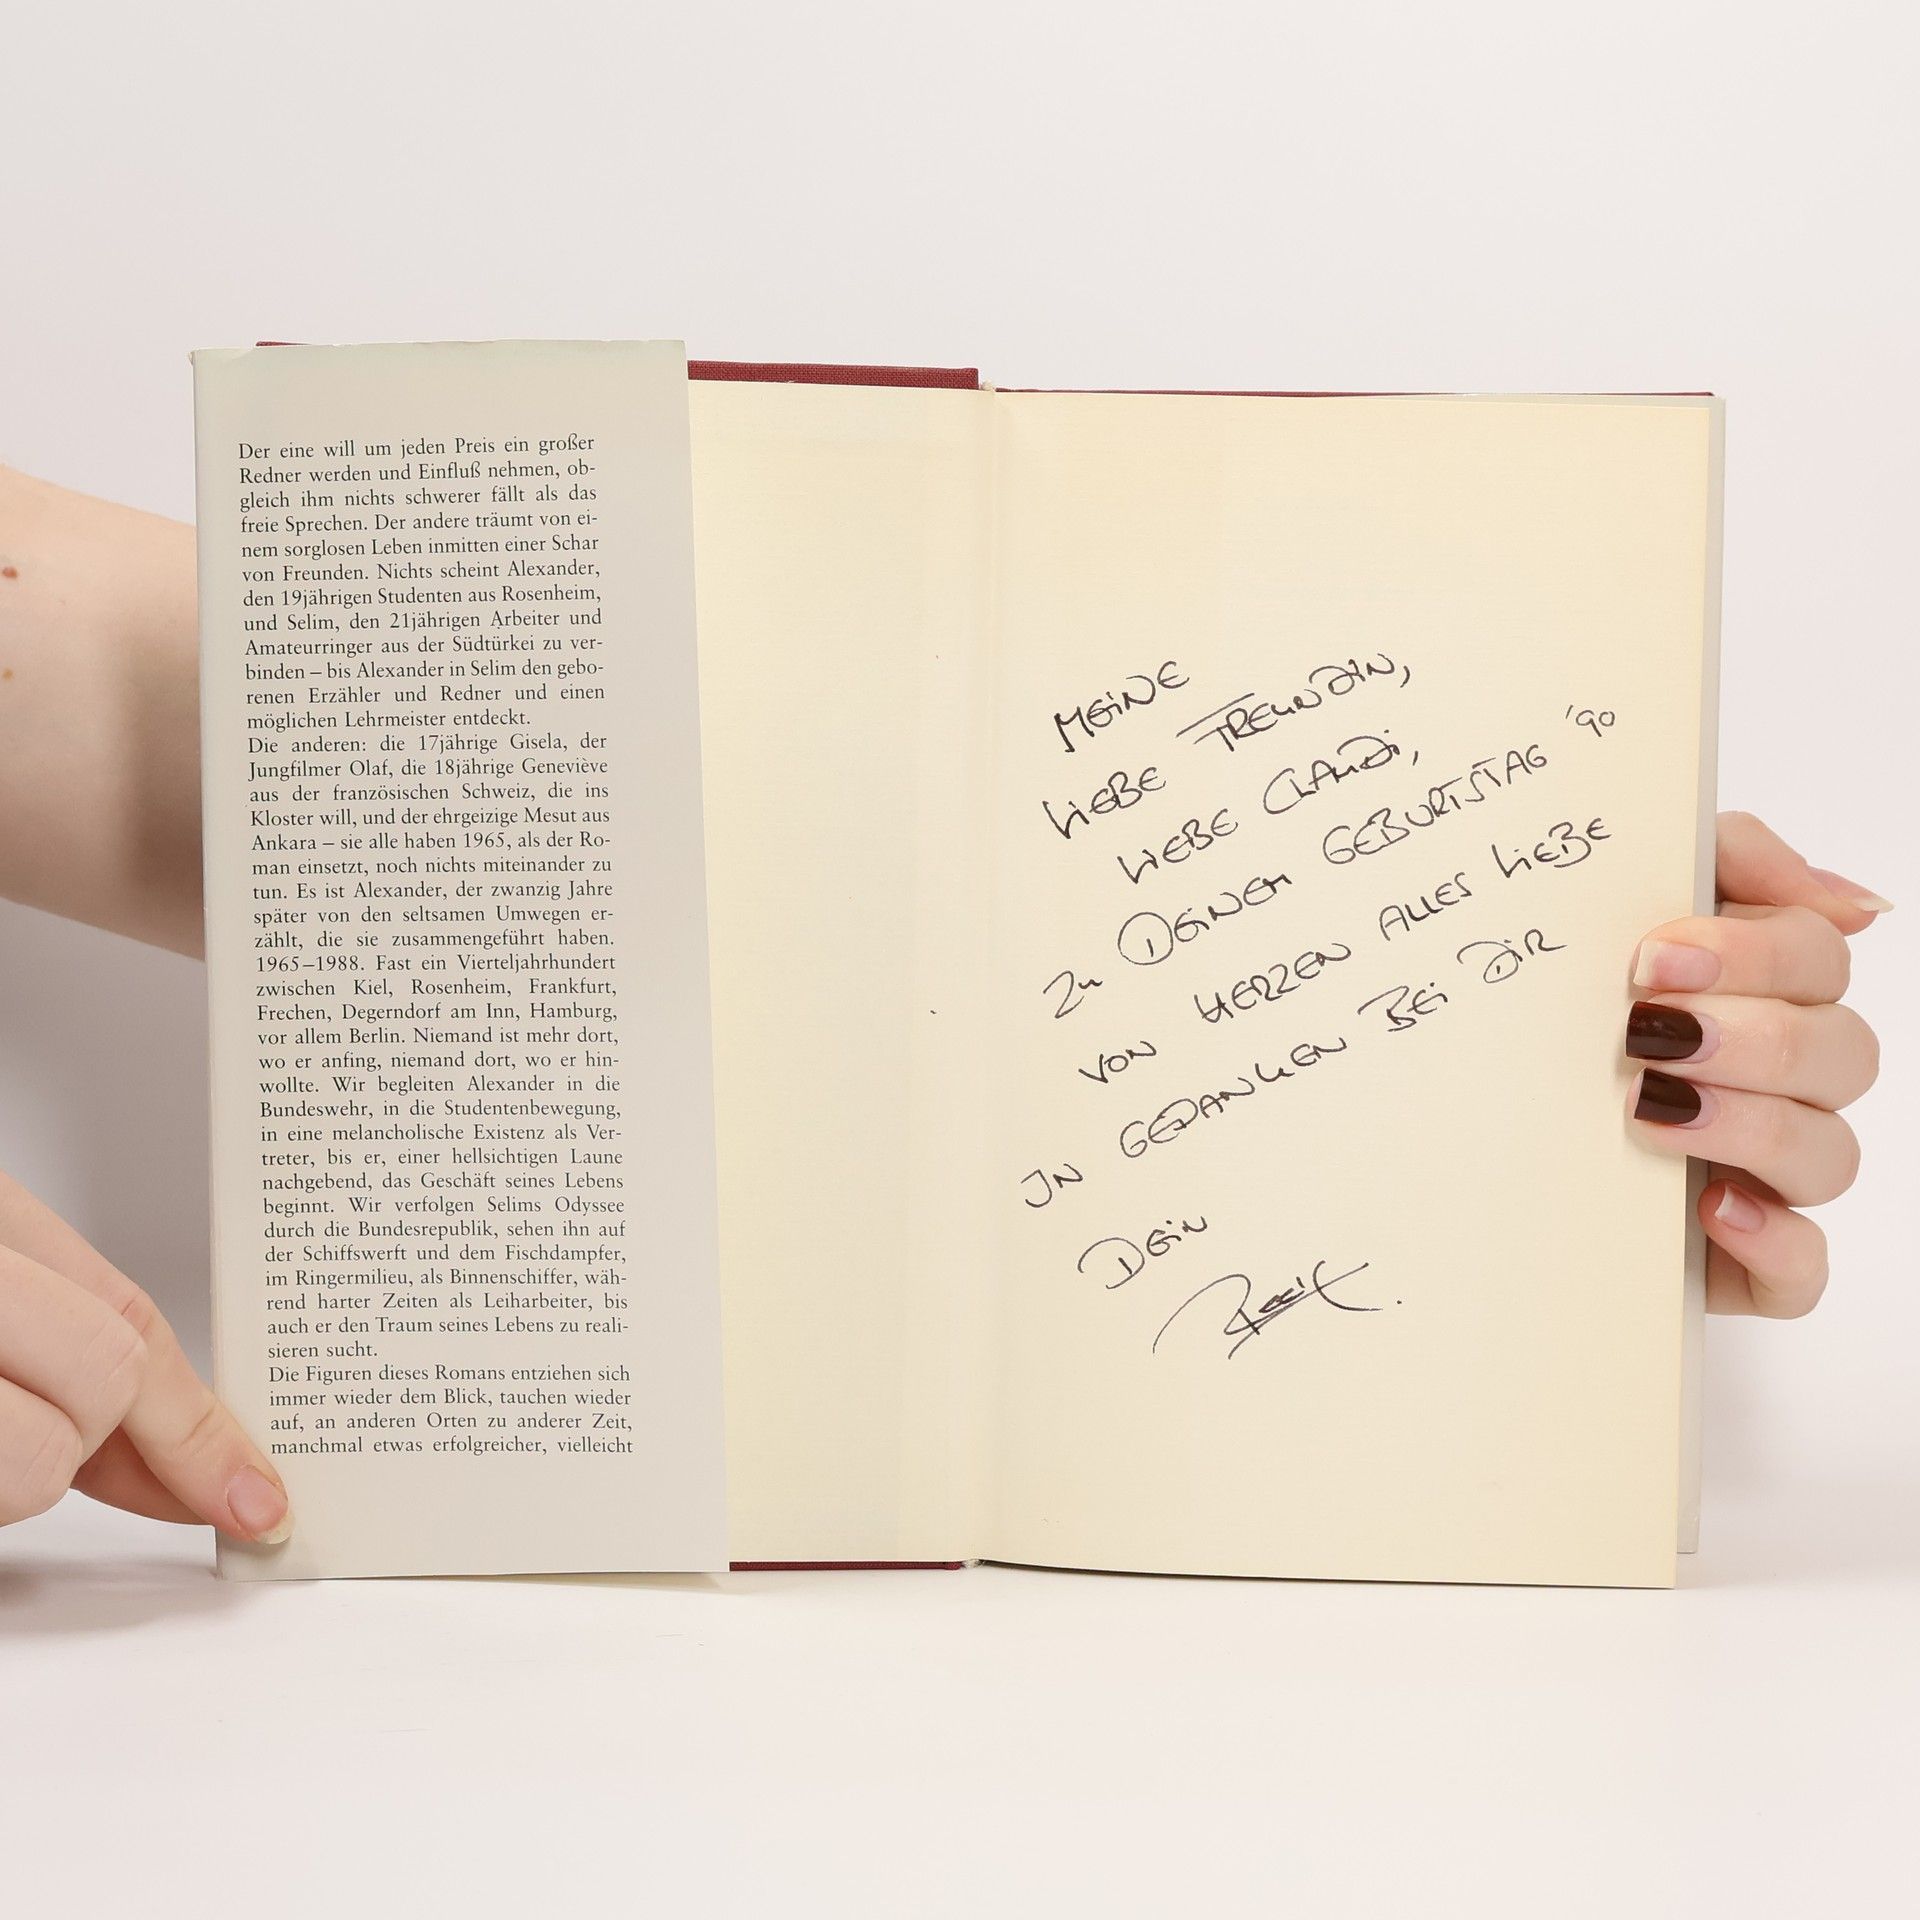 Der eine will um jeden Preis ein großer
Redner werden und Einfluß nehmen, ob-
gleich ihm nichts schwerer fällt als das
freie Sprechen. Der andere träumt von ei-
nem sorglosen Leben inmitten einer Schar
von Freunden. Nichts scheint Alexander,
den 19jährigen Studenten aus Rosenheim,
und Selim, den 21jährigen Arbeiter und
Amateurringer aus der Südtürkei zu ver-
binden – bis Alexander in Selim den gebo-
renen Erzähler und Redner und einen
möglichen Lehrmeister entdeckt.
Die anderen: die 17jährige Gisela, der
Jungfilmer Olaf, die 18jährige Geneviève
aus der französischen Schweiz, die ins
Kloster will, und der ehrgeizige Mesut aus
Ankara – sie alle haben 1965, als der Ro-
man einsetzt, noch nichts miteinander zu
tun. Es ist Alexander, der zwanzig Jahre
später von den seltsamen Umwegen er-
zählt, die sie zusammengeführt haben.
1965–1988. Fast ein Vierteljahrhundert
zwischen Kiel, Rosenheim, Frankfurt,
Frechen, Degerndorf am Inn, Hamburg,
vor allem Berlin. Niemand ist mehr dort,
wo er anfing, niemand dort, wo er hin-
wollte. Wir begleiten Alexander in die
Bundeswehr, in die Studentenbewegung,
in eine melancholische Existenz als Ver-
treter, bis er, einer hellsichtigen Laune
nachgebend, das Geschäft seines Lebens
beginnt. Wir verfolgen Selims Odyssee
durch die Bundesrepublik, sehen ihn auf
der Schiffswerft und dem Fischdampfer,
im Ringermilieu, als Binnenschiffer, wäh-
rend harter Zeiten als Leiharbeiter, bis
auch er den Traum seines Lebens zu reali-
sieren sucht.
Die Figuren dieses Romans entziehen sich
immer wieder dem Blick, tauchen wieder
auf, an anderen Orten zu anderer Zeit,
manchmal etwas erfolgreicher, vielleicht
MEINE
LIEBE FREUNDIN,
LIEBE CLAUDI,
ZU DEINEM GEBURTSTAG '90
VON HERZEN ALLES LIEBE
IN GEDANKEN BEI DIR
DEIN